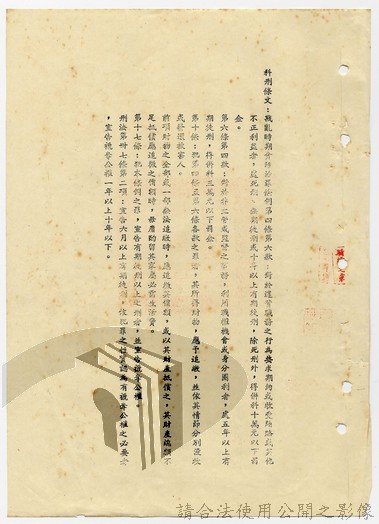 科刑條文：戡亂時期貪污治罪條例第四條第六款：對於違背職務之行為要求期約或收受賄賂或其他
不正利益者，處死刑、無期徒刑或十年以上有期徒刑，除死刑外，得併科十萬元以下罰
金。
第六條第四款：對於主管或監督之事務，利用職權機會或身分圖利者，處五年以上有
期徒刑，得併科三萬元以下罰金。
第十條：犯第四條至第六條各款之罪者，其所得財物，應予追繳，並依其情節分別沒收
或發還被害人。
前項財物之全部或一部無法追繳時，應追徵其價額，或以其財產抵償之，其財產總額不
足抵償應追徵之價額時，毋庸酌留其家屬必需生活費。
第十七條：犯本條例之罪，宣告有期徒刑以上之刑者，並宣告褫奪公權。
刑法第卅七條第二項：宣告六月以上有期徒刑，依犯罪之性質認為有褫奪公權之必要者
，宣告褫奪公權一年以上十年以下。
請合法使用公開之影像